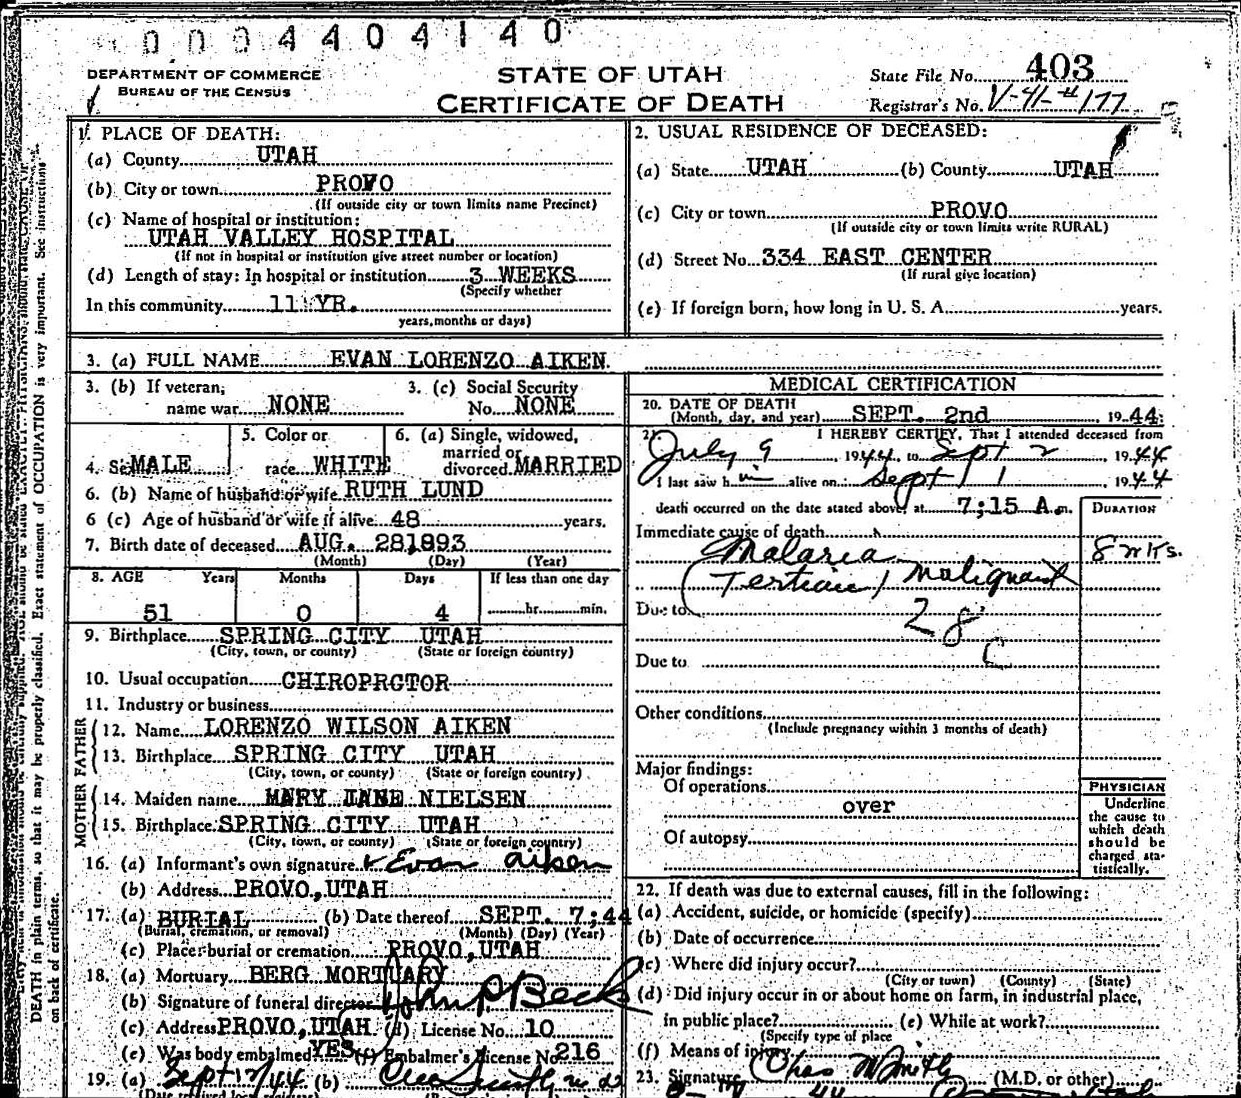 0004404140
DEPARTMENT OF COMMERCE
BUREAU OF THE CENSUS
STATE OF UTAH
CERTIFICATE OF DEATH
State File No. 403
Registrar's No. V-41-#177
1. PLACE OF DEATH:
(a) County UTAH
(b) City or town PROVO
(If outside city or town limits name Precinct)
(c) Name of hospital or institution:
UTAH VALLEY HOSPITAL
(If not in hospital or institution give street number or location)
(d) Length of stay: In hospital or institution 3 WEEKS
(Specify whether
In this community 11 YR.
years, months or days)
2. USUAL RESIDENCE OF DECEASED:
(a) State UTAH (b) County UTAH
(c) City or town PROVO
(If outside city or town limits write RURAL)
(d) Street No. 334 EAST CENTER
(If rural give location)
(e) If foreign born, how long in U. S. A. years.
3. (a) FULL NAME EVAN LORENZO AIKEN.
3. (b) If veteran, 3. (c) Social Security
name war NONE No. NONE
4. Sex MALE
5. Color or
race WHITE
6. (a) Single, widowed,
married or
divorced MARRIED
6. (b) Name of husband or wife RUTH LUND
6 (c) Age of husband or wife if alive 48 years.
7. Birth date of deceased AUG. 281893
(Month) (Day) (Year)
8. AGE Years Months Days If less than one day
51 0 4 hr. min.
9. Birthplace SPRING CITY UTAH
(City, town, or county) (State or foreign country)
10. Usual occupation CHIROPRCTOR
11. Industry or business
FATHER
12. Name LORENZO WILSON AIKEN
13. Birthplace SPRING CITY UTAH
(City, town, or county) (State or foreign country)
MOTHER
14. Maiden name MARY JANE NIELSEN
15. Birthplace SPRING CITY UTAH
(City, town, or county) (State or foreign country)
16. (a) Informant's own signature Evan Aiken
(b) Address PROVO,UTAH
17. (a) BURIAL (b) Date thereof SEPT. 7;44
(Burial, cremation, or removal) (Month) (Day) (Year)
(c) Place: burial or cremation PROVO,UTAH
18. (a) Mortuary BERG MORTUARY
(b) Signature of funeral director John P Beck
(c) Address PROVO,UTAH (d) License No. 10
(e) Was body embalmed YES (f) Embalmer's License No. 216
19. (a) Sept 17/44 (b)
MEDICAL CERTIFICATION
20. DATE OF DEATH
(Month, day, and year) SEPT. 2nd 19 44
21. I HEREBY CERTIFY, That I attended deceased from
July 9, 1944, to Sept 2, 1944
I last saw h im alive on Sept 1, 1944
death occurred on the date stated above, at 7;15 A.m.
DURATION
Immediate cause of death
Malaria 8 wks.
(Tertian) malignant
Due to 28
C
Due to
Other conditions
(Include pregnancy within 3 months of death)
Major findings:
Of operations
over
Of autopsy
PHYSICIAN
Underline
the cause to
which death
should be
charged sta-
tistically.
22. If death was due to external causes, fill in the following:
(a) Accident, suicide, or homicide (specify)
(b) Date of occurrence
(c) Where did injury occur?
(City or town) (County) (State)
(d) Did injury occur in or about home on farm, in industrial place,
in public place? (e) While at work?
(Specify type of place
(f) Means of injury
23. Signature Chas M Smith (M.D. or other)
DEATH in plain terms, so that it may be properly classified. Exact statement of OCCUPATION is very important. See instructions
on back of certificate.